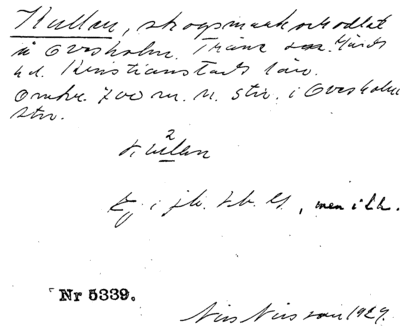 Kullan, skogsmark o. odlat
i Ovesholm. Träne sn. Gärds
hd. Kristianstads län.
Omkr. 700 m. n. str. i Ovesholm
str.
2
kulan
Ej i jb. , men i
Nr 5339.
Nils Nilsson 1929.